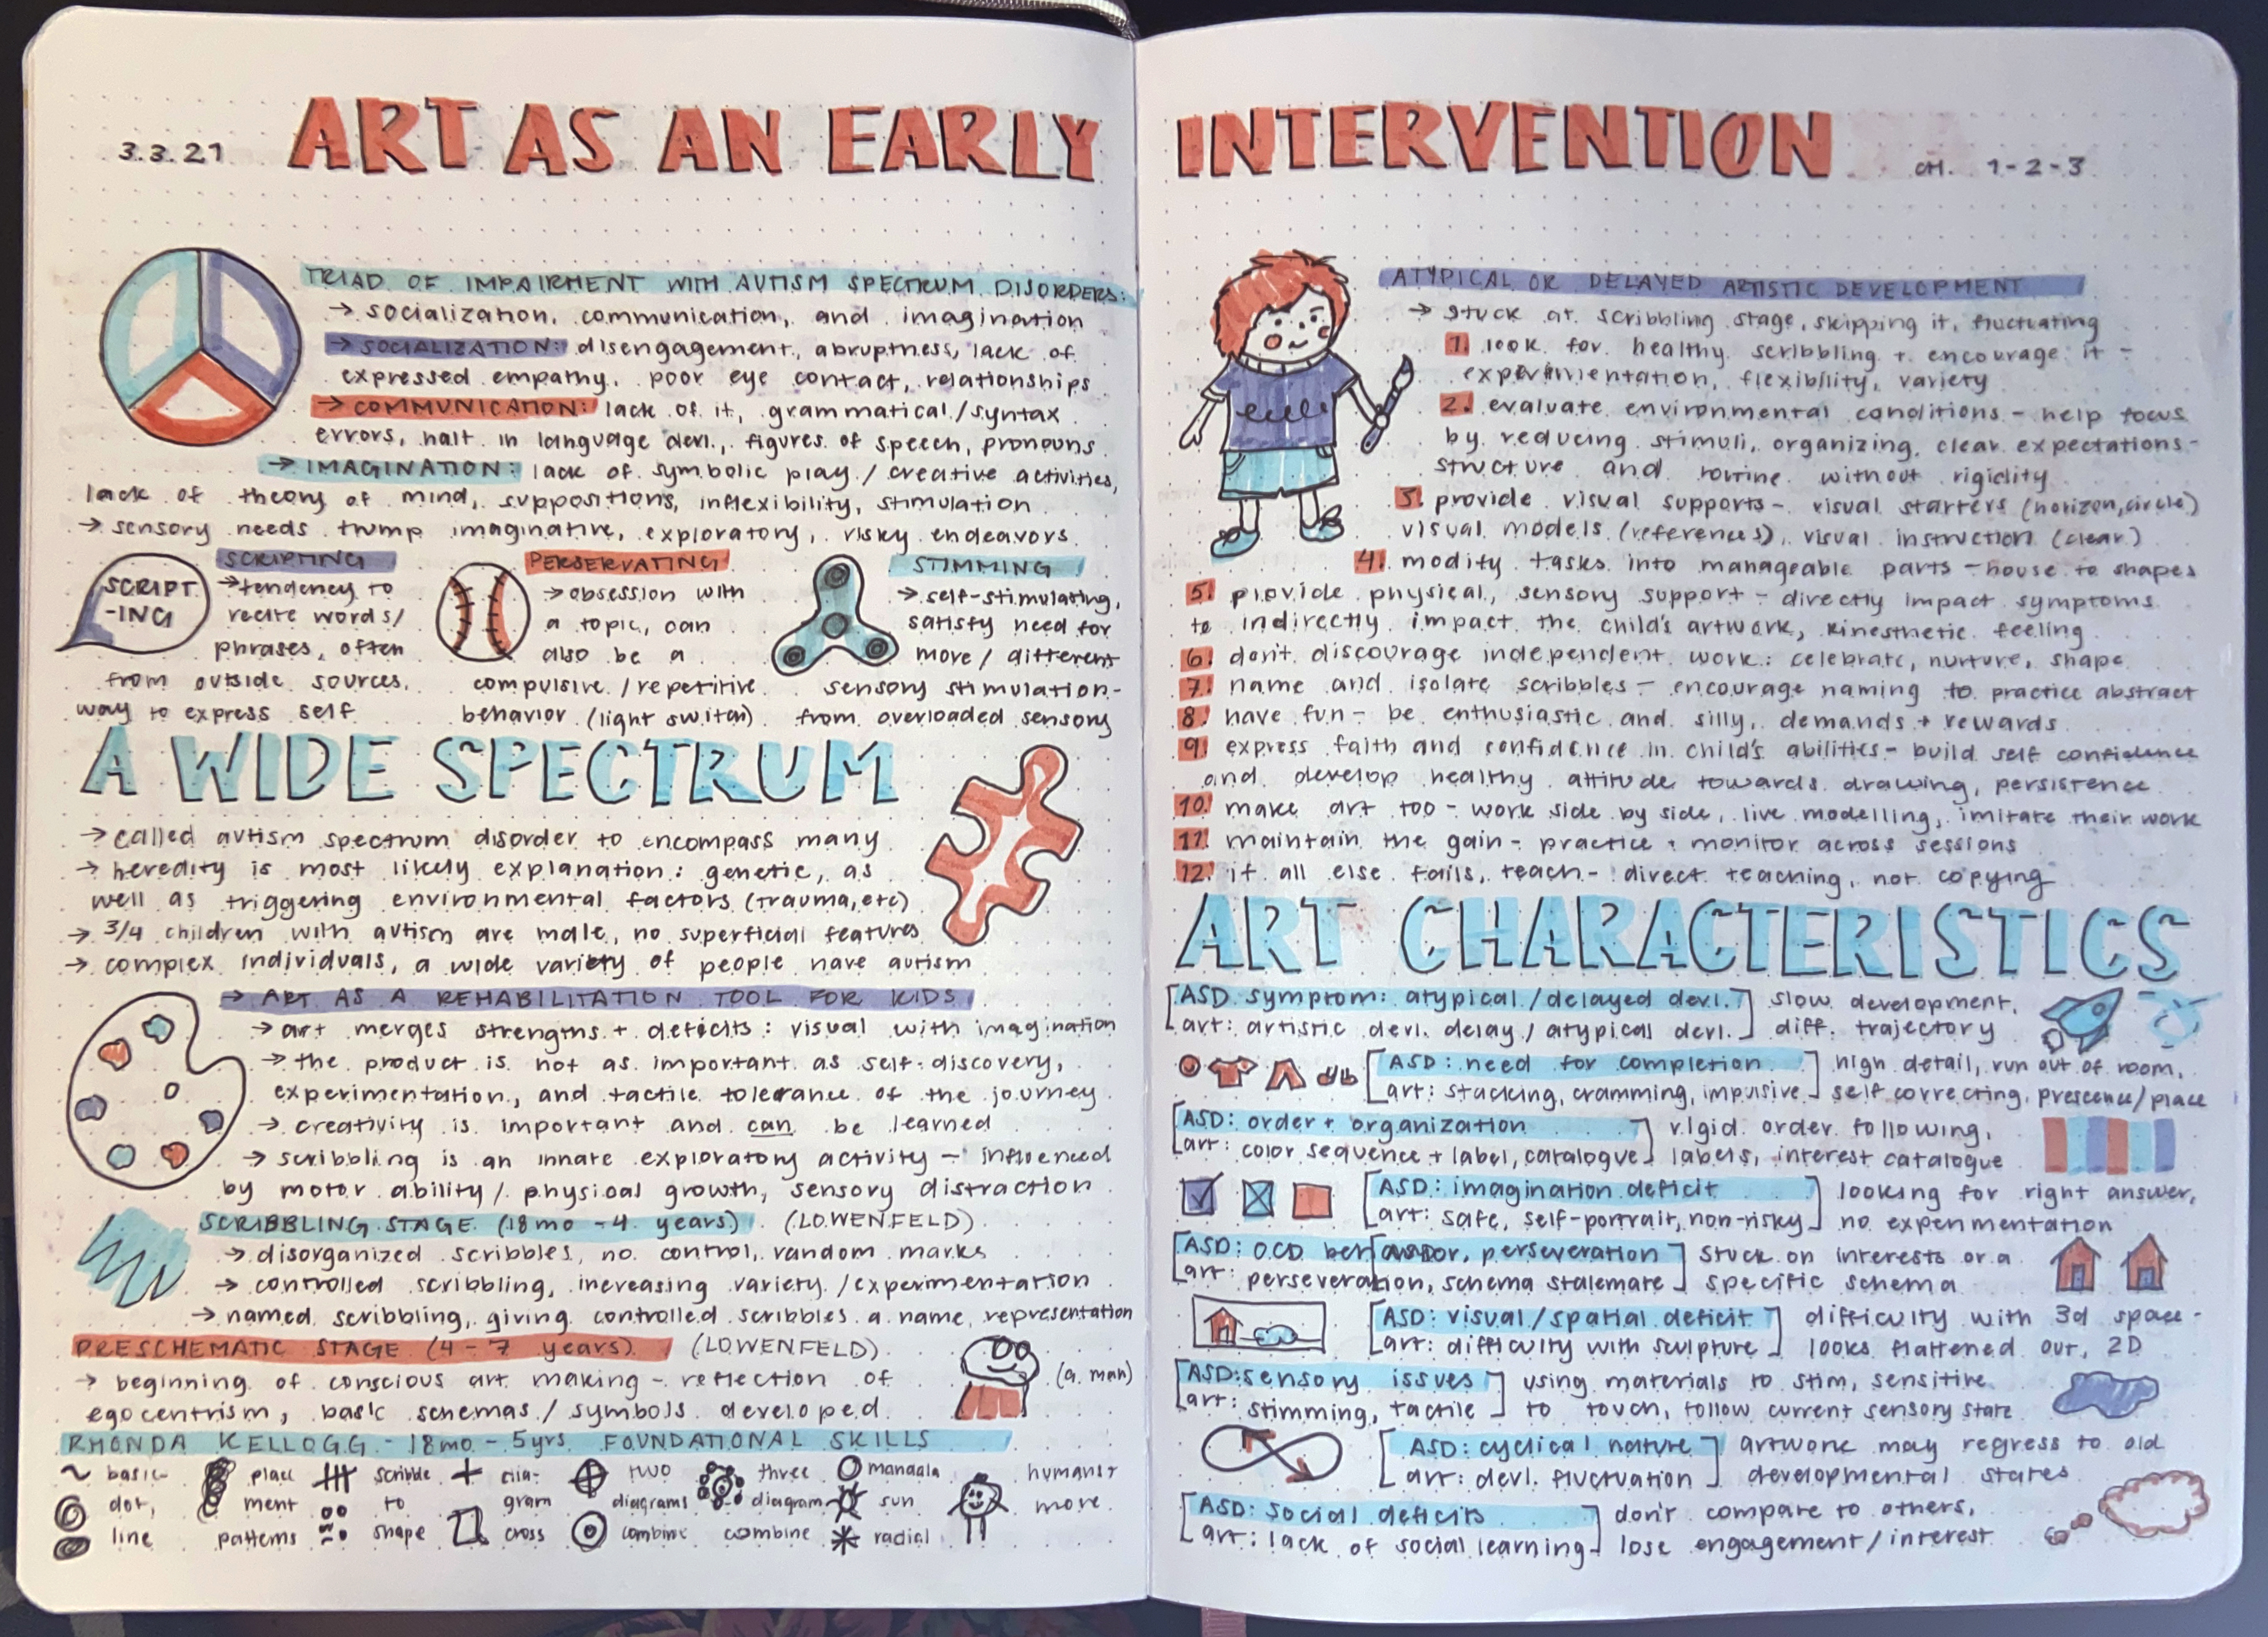 3.3.21 ART AS AN EARLY INTERVENTION CH. 1-2-3
TRIAD OF IMPAIRMENT WITH AUTISM SPECTRUM DISORDERS:
→ socialization, communication, and imagination
→ SOCIALIZATION: disengagement, abruptness, lack of
expressed empathy, poor eye contact, relationships
→ COMMUNICATION: lack of it, grammatical/syntax
errors, halt in language devl., figures of speech, pronouns
→ IMAGINATION: lack of symbolic play / creative activities,
lack of theory of mind, suppositions, inflexibility, stimulation
→ sensory needs trump imaginative, exploratory, risky endeavors
SCRIPT
-ING
SCRIPTING
→ tendency to
recite words/
phrases, often
from outside sources,
way to express self
PERSERVATING
→ obsession with
a topic, can
also be a
compulsive / repetitive
behavior (light switch)
STIMMING
→ self-stimulating,
satisfy need for
more / different
sensory stimulation-
from overloaded sensory
A WIDE SPECTRUM
→ called autism spectrum disorder to encompass many
→ heredity is most likely explanation: genetic, as
well as triggering environmental factors (trauma, etc)
→ 3/4 children with autism are male, no superficial features
→ complex individuals, a wide variety of people have autism
→ ART AS A REHABILITATION TOOL FOR KIDS
→ art merges strengths + deficits: visual with imagination
→ the product is not as important as self-discovery,
experimentation, and tactile tolerance of the journey
→ creativity is important and can be learned
→ scribbling is an innate exploratory activity - influenced
by motor ability / physical growth, sensory distraction
SCRIBBLING STAGE (18mo - 4 years) (LOWENFELD)
→ disorganized scribbles, no control, random marks
→ controlled scribbling, increasing variety / experimentation
→ named scribbling, giving controlled scribbles a name, representation
PRESCHEMATIC STAGE (4-7 years) (LOWENFELD)
→ beginning of conscious art making - reflection of
egocentrism, basic schemas / symbols developed
(a man)
RHONDA KELLOGG - 18mo - 5yrs FOUNDATIONAL SKILLS
basic-
dot,
line
place
ment
patterns
scribble
to
shape
dia-
gram
cross
two
diagrams
combine
three
diagram
combine
mandala
sun
radial
humans+
more
ATYPICAL OR DELAYED ARTISTIC DEVELOPMENT
→ stuck at scribbling stage, skipping it, fluctuating
1. look for healthy scribbling + encourage it -
experimentation, flexibility, variety
2. evaluate environmental conditions - help focus
by reducing stimuli, organizing, clear expectations -
structure and routine without rigidity
3. provide visual supports - visual starters (horizon, circle)
visual models (references), visual instruction (clear)
4. modify tasks into manageable parts - house to shapes
5. provide physical, sensory support - directly impact symptoms
to indirectly impact the child's artwork, kinesthetic feeling
6. don't discourage independent work: celebrate, nurture, shape
7. name and isolate scribbles - encourage naming to practice abstract
8. have fun - be enthusiastic and silly, demands + rewards
9. express faith and confidence in child's abilities - build self confidence
and develop healthy attitude towards drawing, persistence
10. make art too - work side by side, live modelling, imitate their work
11. maintain the gain - practice + monitor across sessions
12. if all else fails, teach - direct teaching, not copying
ART CHARACTERISTICS
ASD symptom: atypical / delayed devl.
art: artistic devl. delay / atypical devl.
slow development,
diff. trajectory
ASD: need for completion
art: stacking, cramming, impulsive
high detail, run out of room,
self correcting, prescence/place
ASD: order + organization
art: color sequence + label, catalogue
rigid order following,
labels, interest catalogue
ASD: imagination deficit
art: safe, self-portrait, non-risky
looking for right answer,
no experimentation
ASD: OCD behavior, perseveration
art: perseveration, schema stalemate
stuck on interests or a
specific schema
ASD: visual/spatial deficit
art: difficulty with sculpture
difficulty with 3d space -
looks flattened out, 2D
ASD: sensory issues
art: stimming, tactile
using materials to stim, sensitive
to touch, follow current sensory state
ASD: cyclical nature
art: devl. fluctuation
artwork may regress to old
developmental states
ASD: social deficits
art: lack of social learning
don't compare to others,
lose engagement/interest